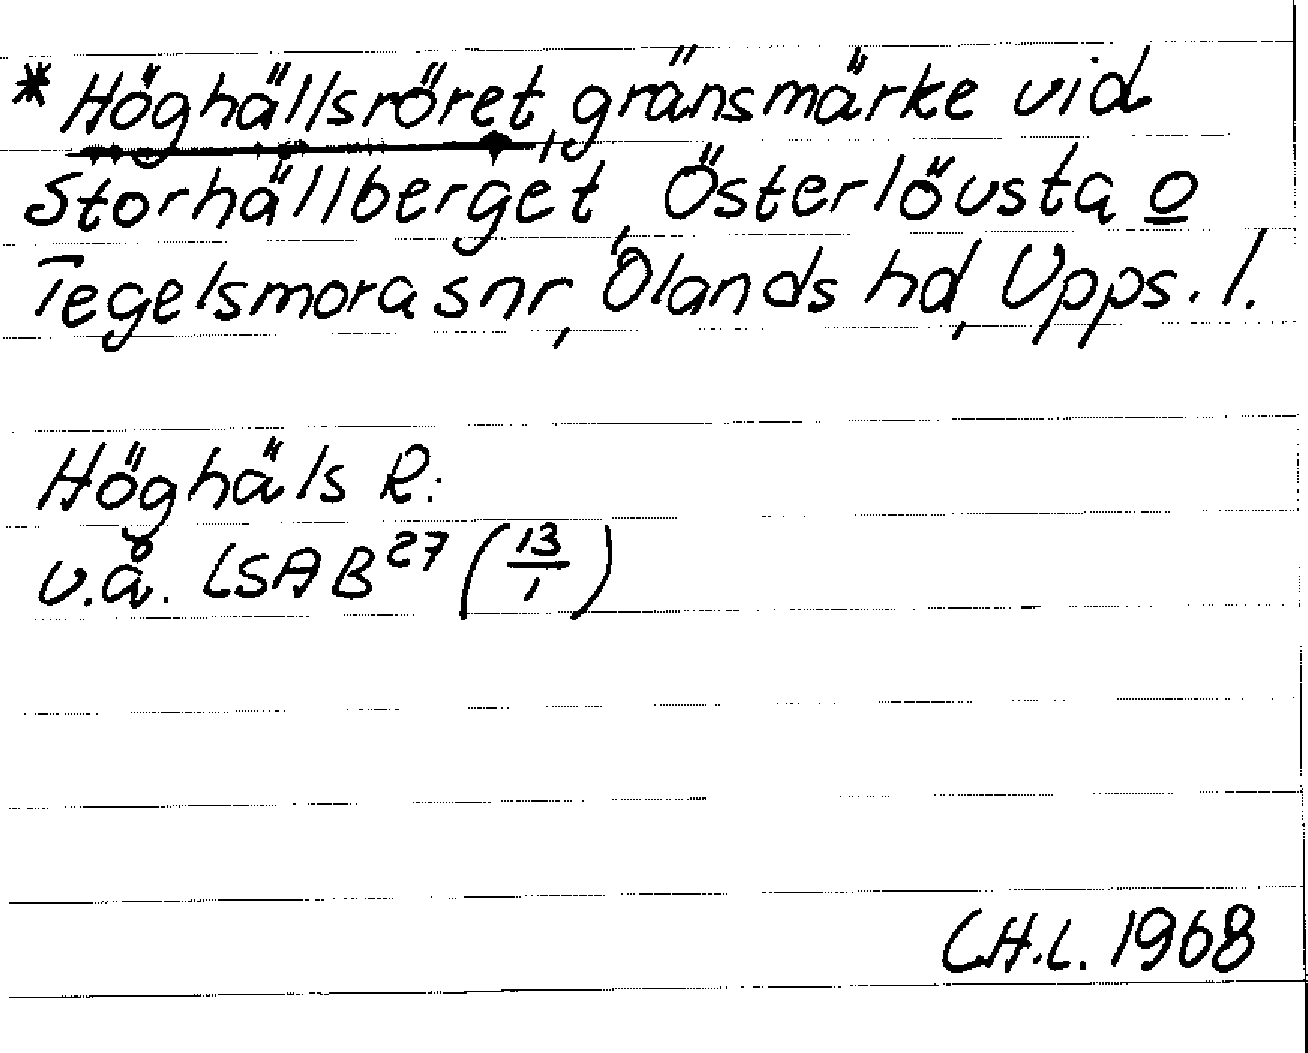 * Höghällsröret, gränsmärke vid
Storhällberget, Österlövsta o
Tegelsmora snr, Ölands hd, Upps. l.
Höghäls R:
u.å. LSA B27 (13/1)
C.H.L. 1968